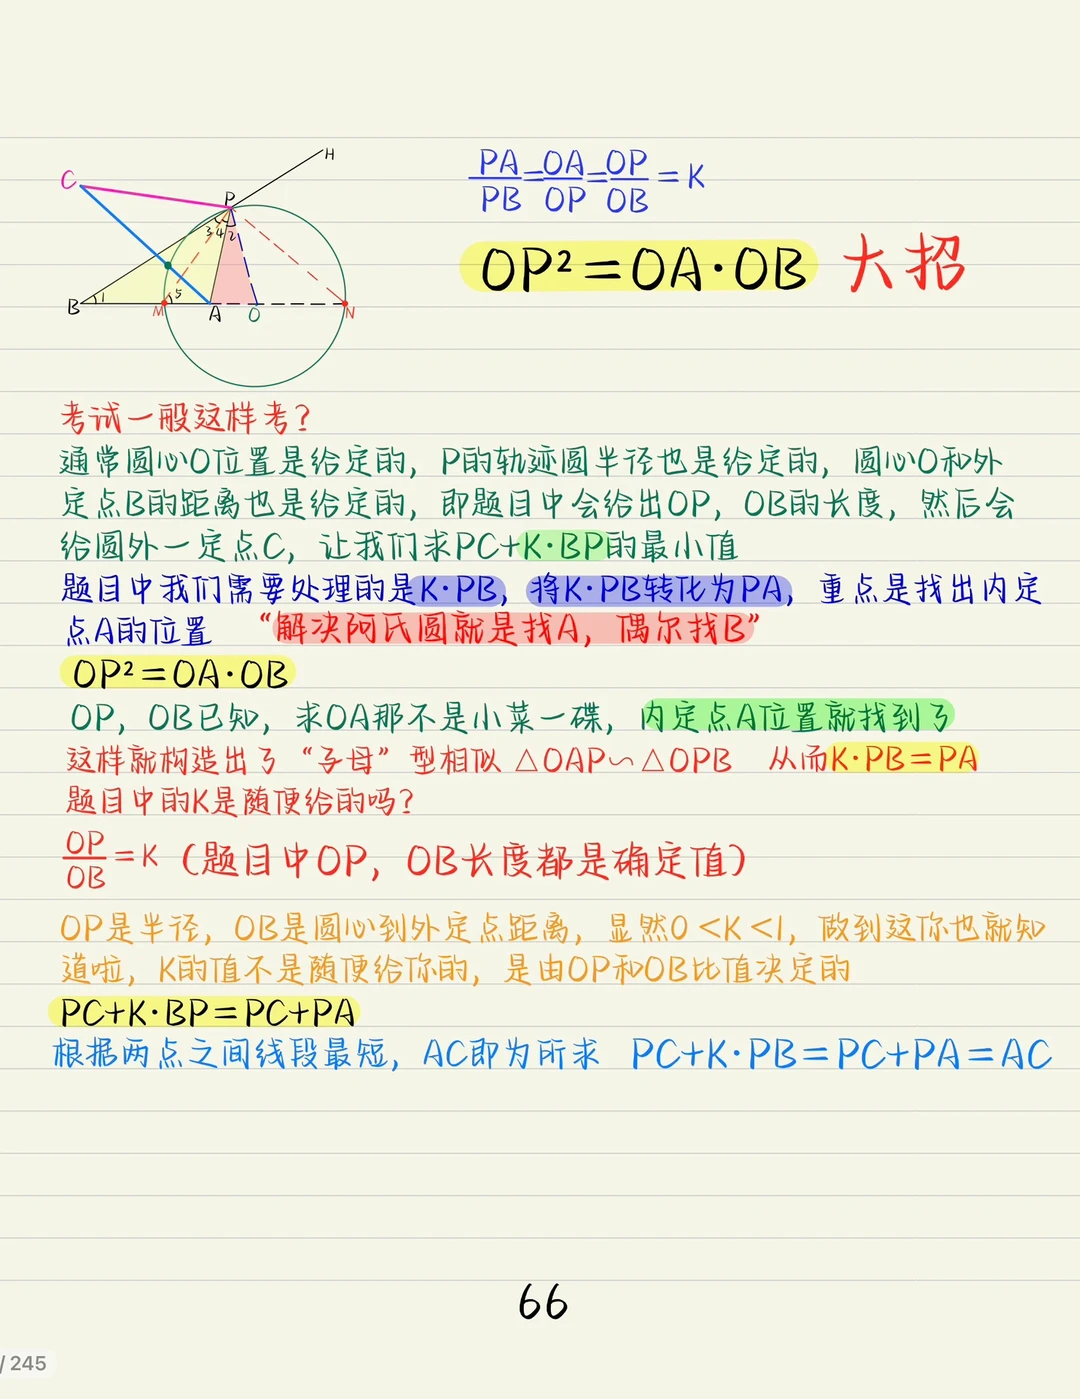 C
H
P
3 4 2
B
1
M
5
A
O
N
PA/PB=OA/OP=OP/OB=K
OP²=OA·OB 大招
考试一般这样考?
通常圆心O位置是给定的，P的轨迹圆半径也是给定的，圆心O和外
定点B的距离也是给定的，即题目中会给出OP，OB的长度，然后会
给圆外一定点C，让我们求PC+K·BP的最小值
题目中我们需要处理的是K·PB，将K·PB转化为PA，重点是找出内定
点A的位置 “解决阿氏圆就是找A，偶尔找B”
OP²=OA·OB
OP，OB已知，求OA那不是小菜一碟，内定点A位置就找到了
这样就构造出了“子母”型相似 △OAP∽△OPB 从而K·PB=PA
题目中的K是随便给的吗?
OP/OB=K（题目中OP，OB长度都是确定值）
OP是半径，OB是圆心到外定点距离，显然0<K<1，做到这你也就知
道啦，K的值不是随便给你的，是由OP和OB比值决定的
PC+K·BP=PC+PA
根据两点之间线段最短，AC即为所求 PC+K·PB=PC+PA=AC
66
/ 245